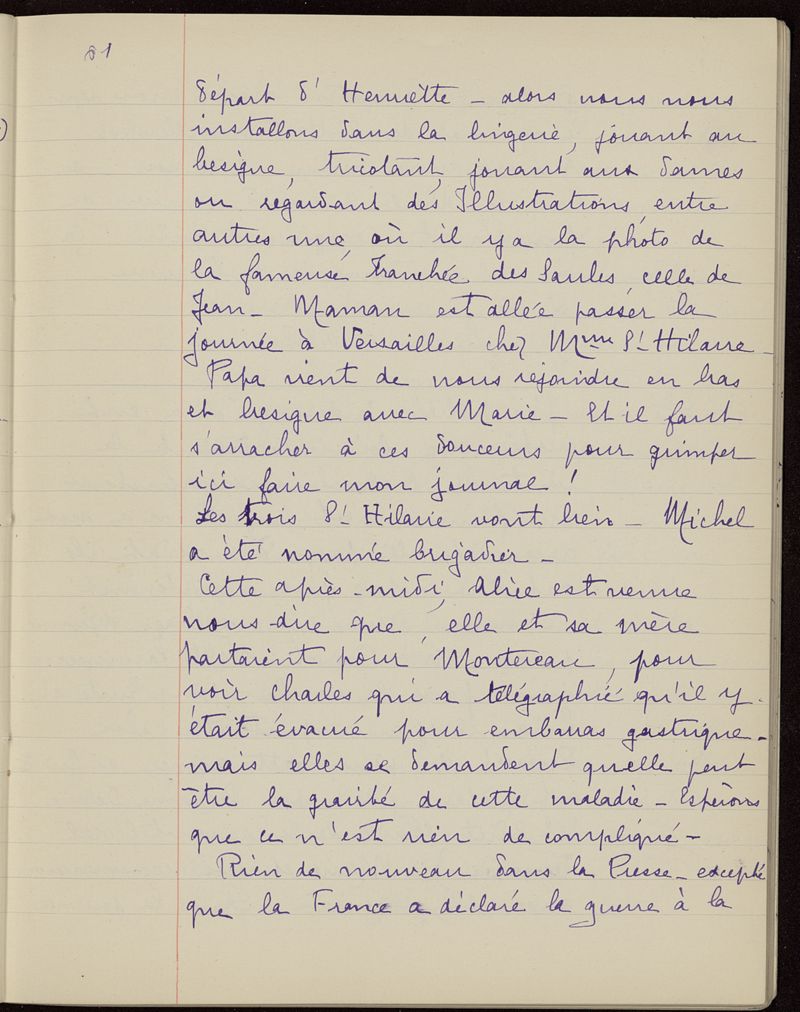 81
départ d'Henriette – alors nous nous
installons dans la lingerie, jouant au
besigue, tricotant, jouant aux dames
ou regardant des Illustrations, entre
autres une, où il y a la photo de
la fameuse Tranchée des Saules, celle de
Jean – Maman est allée passer la
journée à Versailles chez Mme St Hilaire –
Papa vient de nous rejoindre en bas
et besigue avec Marie – Et il faut
s'arracher à ces douceurs pour grimper
ici faire mon journal !
Les trois St Hilaire vont bien – Michel
a été nommé brigadier –
Cette après-midi, Alice est venue
nous dire que, elle et sa mère
partaient pour Montereau, pour
voir Charles qui a télégraphié qu'il y
était évacué pour embarras gastrique –
mais elles se demandent quelle peut
être la gravité de cette maladie – Espérons
que ce n'est rien de compliqué –
Rien de nouveau dans la Presse – excepté
que la France a déclaré la guerre à la